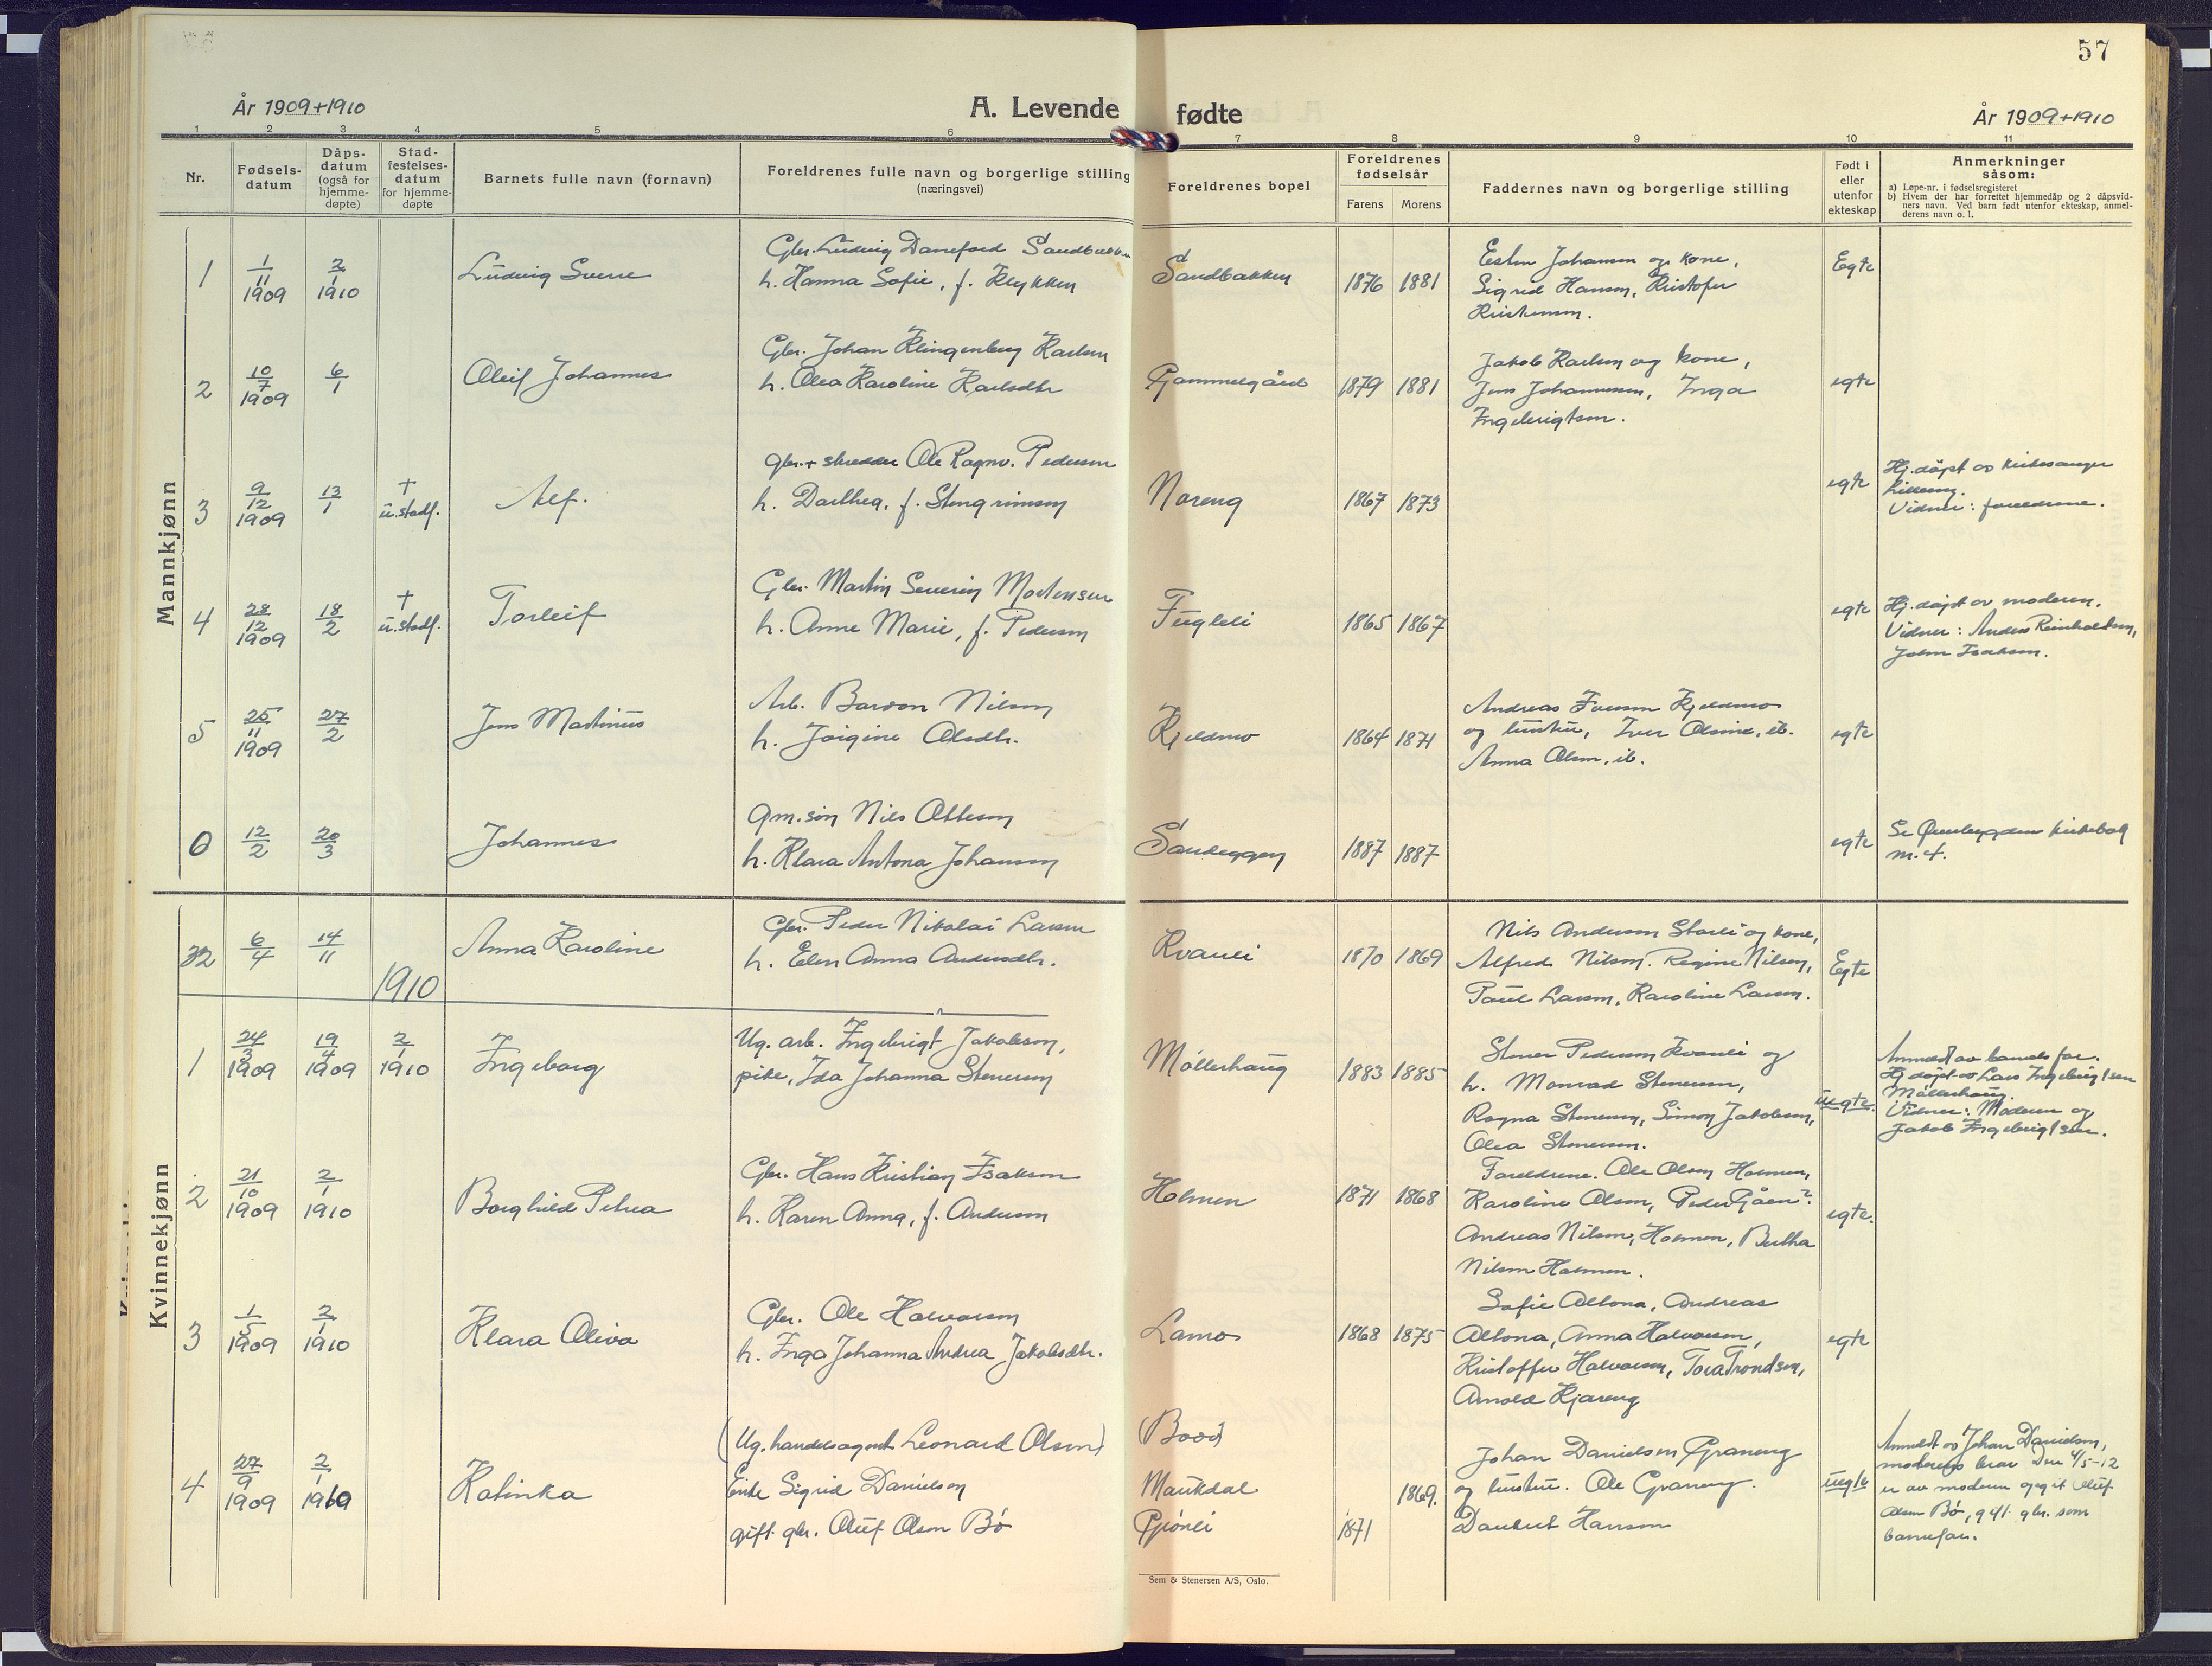 57
År 1909+1910
A. Levende fødte
År 1909+1910
1 2 3 4 5 6 7 8 9 10 11
Nr.
Fødsels-
datum
Dåps-
datum
(også for
hjemme-
døpte)
Stad-
festelses-
datum
for hjemme-
døpte
Barnets fulle navn (fornavn)
Foreldrenes fulle navn og borgerlige stilling
(næringsvei)
Foreldrenes bopel
Foreldrenes
fødselsår
Farens Morens
Faddernes navn og borgerlige stilling
Født i
eller
utenfor
ekteskap
Anmerkninger
såsom:
a) Løpe-nr. i fødselsregisteret
b) Hvem der har forrettet hjemmedåp og 2 dåpsvid-
ners navn. Ved barn født utenfor ekteskap, anmel-
derens navn o. l.
Mannkjønn
1 1/11 1909 2/1 1910 Ludvig Sverre
Gbr. Ludvig Daneford Sandbakken
h. Hanna Sofie, f. Klykken
Sandbakken 1876 1881
Johansen og kone,
Sigrid Hansen, Kristofer
Kristensen.
Egte
2 10/7 1909 6/1 Oleif Johannes
Gbr. Johan Klingenberg Karlsen
h. Olea Karoline Karlsdtr
Gammelgård 1879 1881
Jakob Karlsen og kone,
Jens Johannesen, Inga
Ingebrigtsen.
egte
3 9/12 1909 13/1 † u. stadf. Alf.
gbr. + skredder Ole Ragnv. Pedersen
h. Darthea, f. Stengrimsen
Noreng 1867 1873
egte
Hj. døpt av kirkesanger
Lilleeng.
Vidner: foreldrene.
4 28/12 1909 18/2 † u. stadf. Torleif
Gbr. Martin Severin Mortensen
h. Anne Marie, f. Pedersen
Fugleli 1865 1867
egte
Hj. døpt av moderen.
Vidner: Anders Reinholdtsen,
John Isaksen.
5 25/11 1909 27/2 Jens Martinus
Arb. Bardon Nilsen
h. Jörgine Olsdtr.
Kjeldmo 1864 1871
Andreas Iversen Kjeldmo
og hustru, Iver Olsen, ib.
Anna Olsen, ib.
egte
6 12/2 20/3 Johannes
Gm. søn Nils Ottesen
h. Klara Antona Johansen
Sandeggen 1887 1887
egte
Se Øverbygden kirkebok
nr. 4.
Kvinnekjønn
32 6/4 14/11 Anna Karoline
Gbr. Peder Nikolai Larsen
h. Elen Anna Andersdtr.
Kvanli 1870 1869
Nils Andersen Storli og kone,
Alfred Nilsen, Regine Nilsen,
Paul Larsen, Karoline Larsen.
Egte
1910
1 24/3 1909 19/4 1909 2/1 1910 Ingeborg
Ug. arb. Ingebrigt Jakobsen,
pike, Ida Johanna Stenersen
Möllerhaug 1883 1885
Stener Pedersen Kvanli og
h. Monrad Stenersen,
Ragna Stenersen, Simon Jakobsen,
Olea Stenersen.
uegte.
Anmeldt av barnets far.
Hj. døpt av Lars Ingebrigtsen
Möllerhaug.
Vidner: Moderen og
Jakob Ingebrigtsen.
2 21/10 1909 2/1 1910 Borghild Petrea
Gbr. Hans Kristian Isaksen
h. Karen Anna, f. Andersen
Holmen 1871 1868
Foreldrene. Ole Olsen Holmen,
Karoline Olsen, Peder Gåen?
Andreas Nilsen, Holmen, Bertha
Nilsen Holmen.
egte.
3 1/5 1909 2/1 1910 Klara Oliva
Gbr. Ole Halvorsen
h. Inga Johanna Andrea Jakobsdtr.
Lamo 1868 1875
Sofie Altona, Andreas
Altona, Anna Halvorsen,
Kristoffer Halvorsen, Tora Trondsen,
Arnold Kjæreng
egte
4 27/9 1909 2/1 1910 Katinka
(Ug. handelsagent Leonard Olsen)
Enke Sigrid Danielsen
gift gbr. Oluf Olsen Bö
(Bodö)
Maukdal 1869.
Gjönli 1871
Johan Danielsen Graneng
og hustru. Ole Graneng.
Hansen
uegte
Anmeldt av Johan Danielsen,
moderens bror. Den 4/5-12
er av moderen opgit Oluf
Olsen Bö, gift gbr. som
barnefar.
Sem & Stenersen A/S, Oslo.